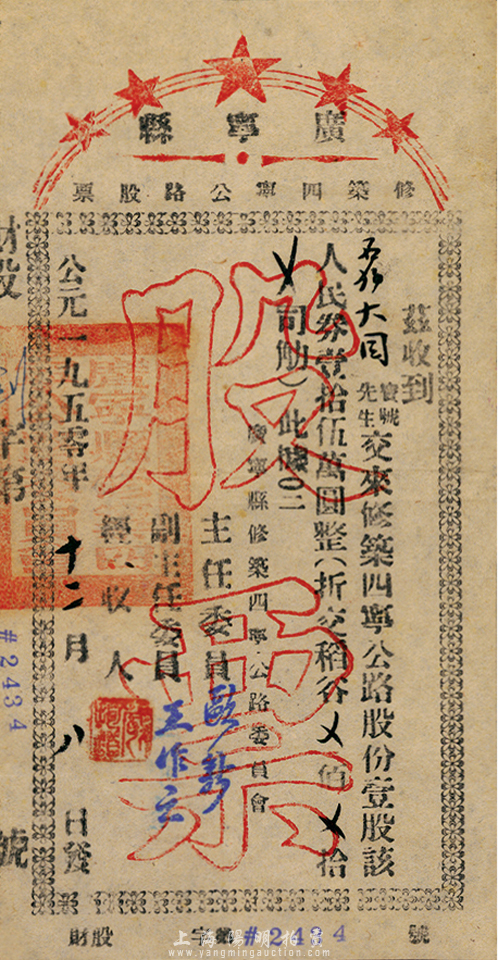 廣寧縣
修築四寧公路股票
茲收到
大同 寶號 先生 交來修築四寧公路股份壹股該
人民券壹拾伍萬圓整（折交稻谷乂佰乂拾
乂司觔）此據〇二
廣寧縣修築四寧公路委員會
主任委員 歐新
副主任委員 王作云
經收人
公元一九五零年十二月八日發
股票
財股
字第
#2434
號
財股 字第 #2434 號
上海陽明拍賣
www.yangmingauction.com